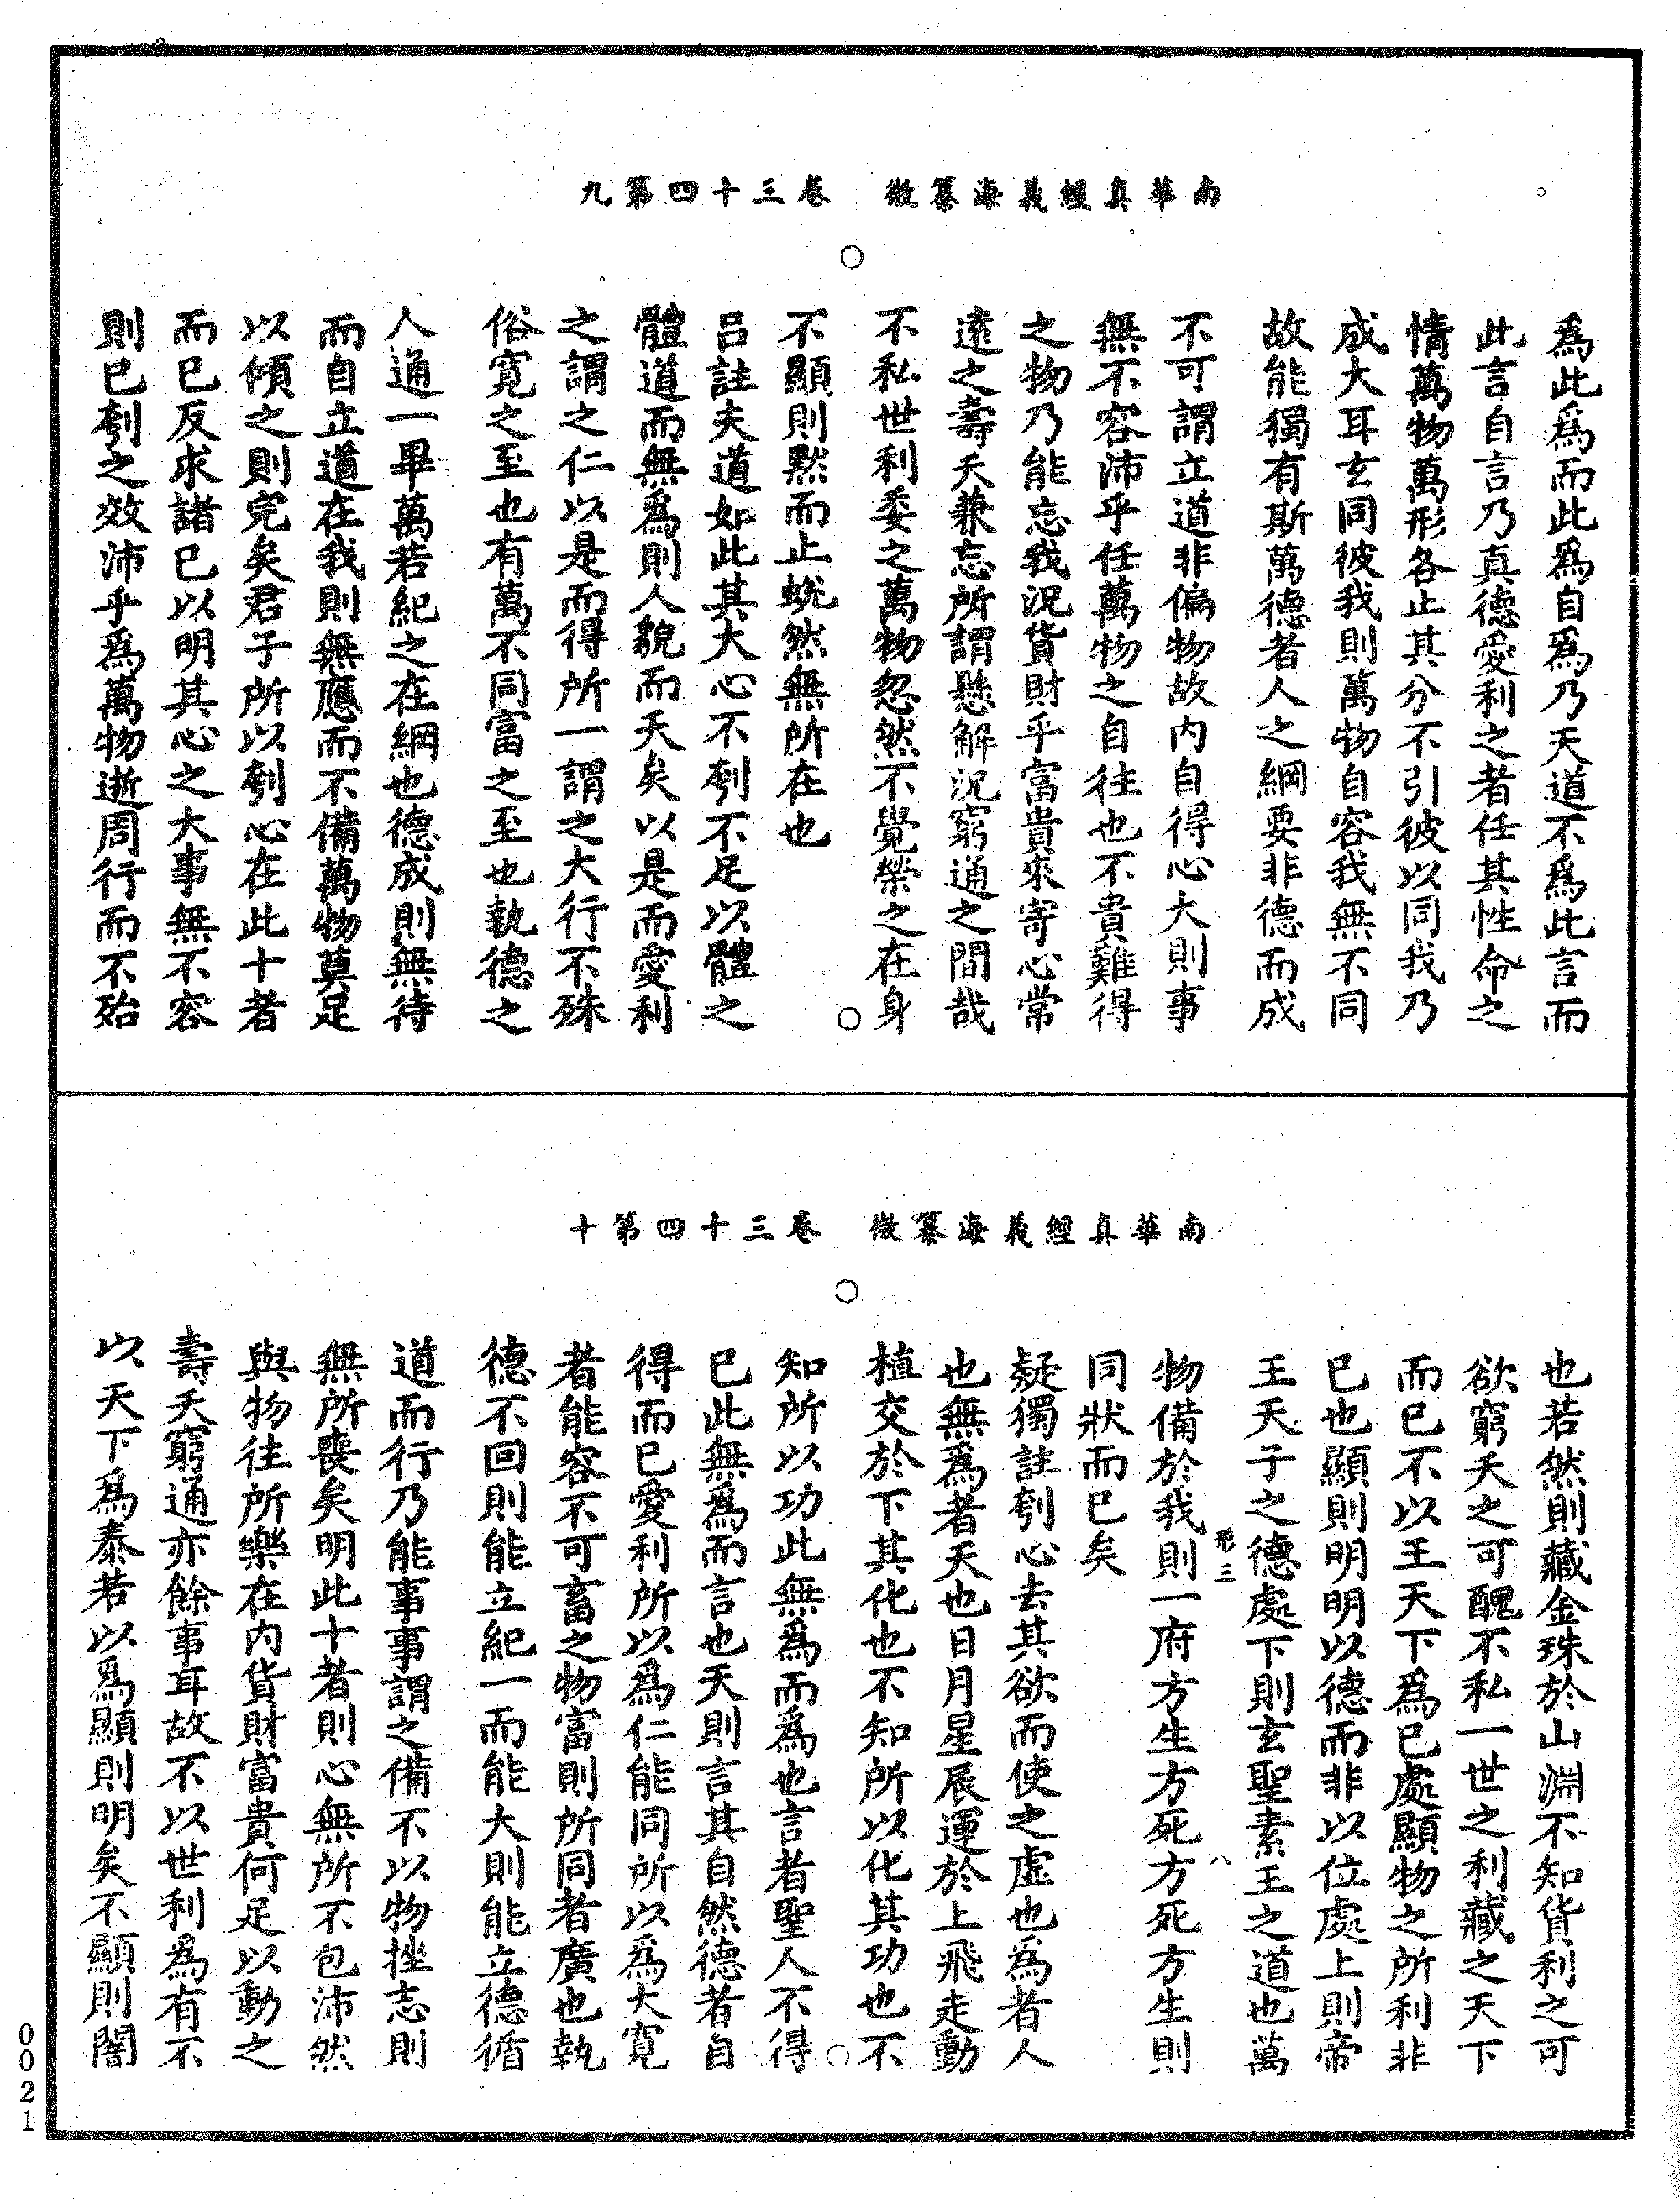 南華真經義海纂微　卷三十四第九
爲此爲而此爲自爲乃天道不爲此言而
此言自言乃真德愛利之者任其性命之
情萬物萬形各止其分不引彼以同我乃
成大耳玄同彼我則萬物自容我無不同
故能獨有斯萬德者人之綱要非德而成
不可謂立道非偏物故内自得心大則事
無不容沛乎任萬物之自往也不貴難得
之物乃能忘我況貨財乎富貴來寄心常
遠之壽夭兼忘所謂懸解況窮通之間哉
不私世利委之萬物忽然不覺榮之在身
不顯則默而止蛻然無所在也
吕註夫道如此其大心不刳不足以體之
體道而無爲則人貌而天矣以是而愛利
之謂之仁以是而得所一謂之大行不殊
俗寛之至也有萬不同富之至也執德之
人通一畢萬若紀之在綱也德成則無待
而自立道在我則無應而不備萬物莫足
以傾之則完矣君子所以刳心在此十者
而已反求諸已以明其心之大事無不容
則已刳之效沛乎爲萬物逝周行而不殆
南華真經義海纂微　卷三十四第十
也若然則藏金珠於山淵不知貨利之可
欲窮夭之可醜不私一世之利藏之天下
而已不以王天下爲已處顯物之所利非
已也顯則明明以德而非以位處上則帝
王天子之德處下則玄聖素王之道也萬
形三　八
物備於我則一府方生方死方死方生則
同狀而已矣
疑獨註刳心去其欲而使之虛也爲者人
也無爲者天也日月星辰運於上飛走動
植交於下其化也不知所以化其功也不
知所以功此無爲而爲也言者聖人不得
已此無爲而言也天則言其自然德者自
得而已愛利所以爲仁能同所以爲大寛
者能容不可畜之物富則所同者廣也執
德不回則能立紀一而能大則能立德循
道而行乃能事事謂之備不以物挫志則
無所喪矣明此十者則心無所不包沛然
與物往所樂在内貨財富貴何足以動之
壽夭窮通亦餘事耳故不以世利爲有不
以天下爲泰若以爲顯則明矣不顯則闇
0021